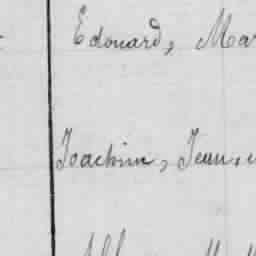 Edouard, Mar
Joachim, Jean,